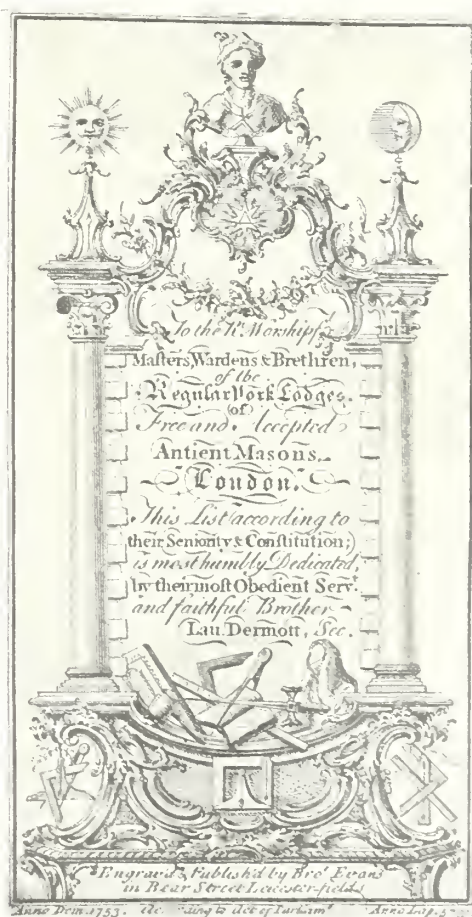 To the Rt. Worshipf.
Masters, Wardens & Brethren,
of the
Regular York Lodges.
of
Free and Accepted
Antient Masons.
London.
This List according to
their Seniority & Constitution;
is most humbly Dedicated,
by their most Obedient Servt.
and faithful Brother
Lau. Dermott, Sec.
Engrav'd & Publish'd by Bror. Evans
in Bear Street Leicester-fields
Anno Dom. 1753. to Act of Parliamt. Anno